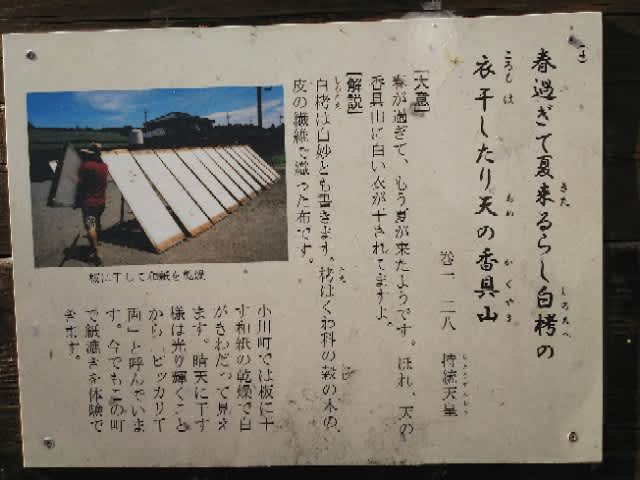 春過ぎて夏来るらし白栲の
衣干したり天の香具山
巻一 二八 持統天皇
[大意]
春が過ぎて、もう夏が来たようです。ほれ、天の
香具山に白い衣が干されてますよ。
[解説]
白栲は白妙とも書きます。栲はくわ科の穀の木の、
皮の繊維で織った布です。
板に干して和紙を乾燥
小川町では板に干
す和紙の乾燥で白
がきわだって見え
ます。晴天に干す
様は光り輝くこと
から「ピッカリ千
両」と呼んでいま
す。今でもこの町
で紙漉きを体験で
きます。